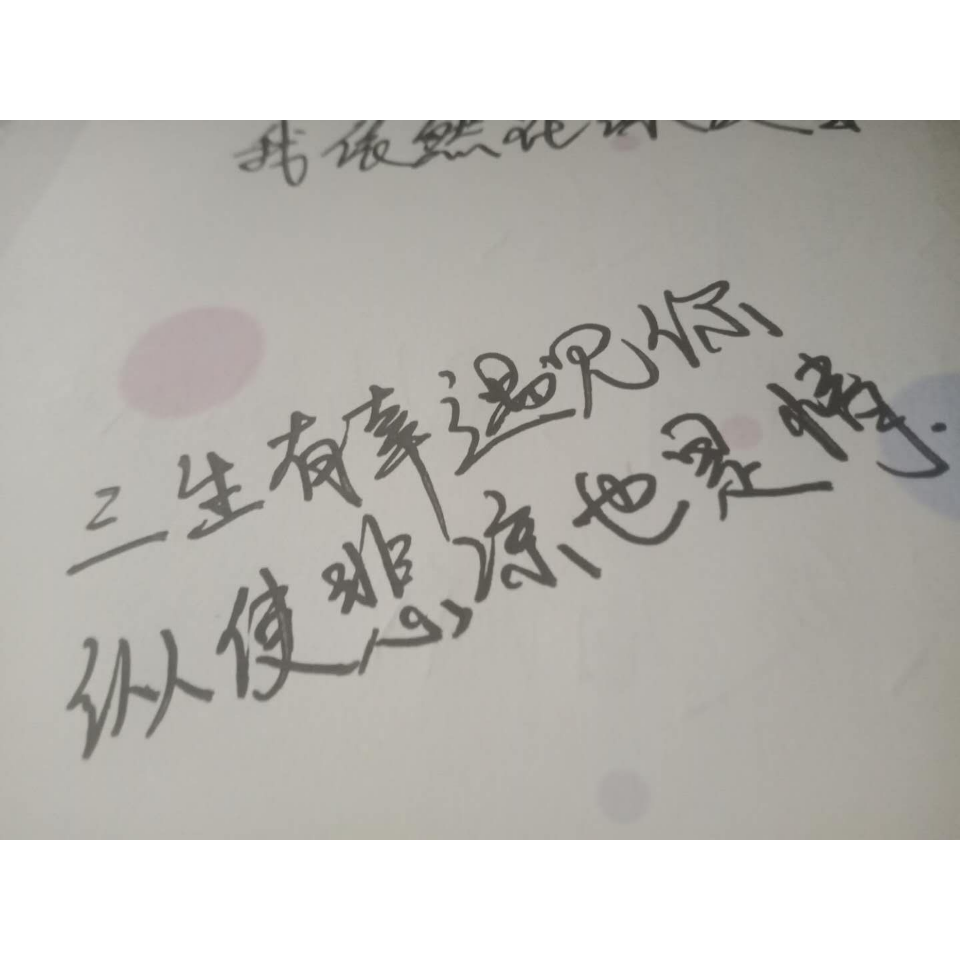 我依然在
三生有幸遇见你
纵使悲凉也是情.